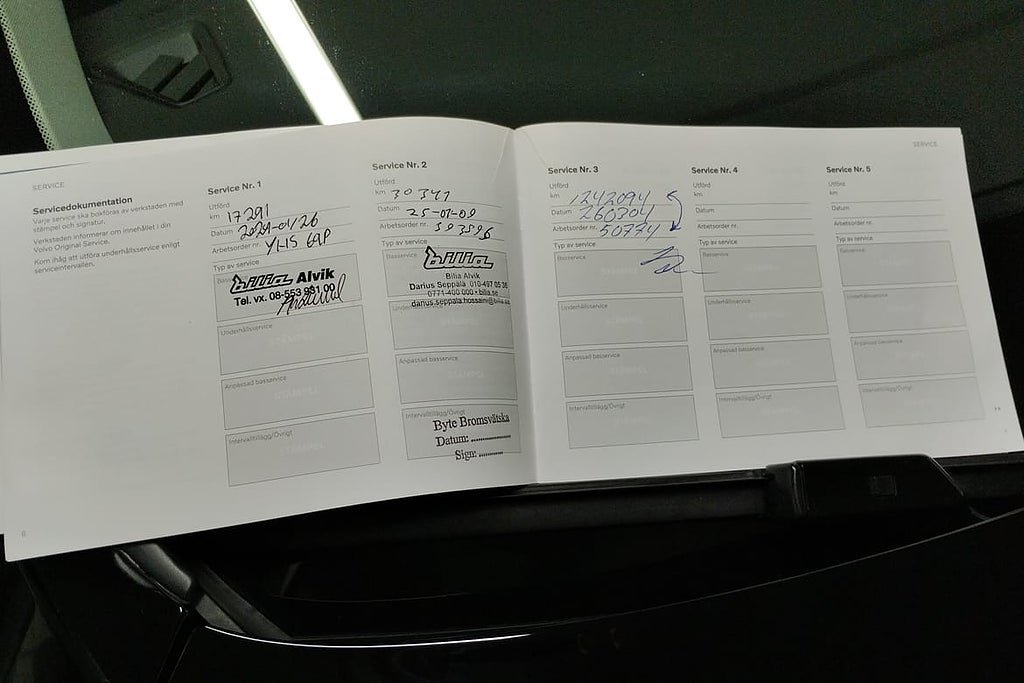 SERVICE
Servicedokumentation
Varje service ska bokföras av verkstaden med
stämpel och signatur.
Verkstaden informerar om innehållet i din
Volvo Original Service.
Kom ihåg att utföra underhållsservice enligt
serviceintervallen.
6
Service Nr. 1
Utförd
km 17291
Datum 2024-04/26
Arbetsorder nr. YHS 69P
Typ av service
bilia Alvik
Tel. vx. 08-553 981 00
Underhållsservice
STÄMPEL
Anpassad basservice
STÄMPEL
Intervalltillägg/Övrigt
STÄMPEL
Service Nr. 2
Utförd
km 30347
Datum 25-01-09
Arbetsorder nr. 593596
Typ av service
Basservice
bilia
Bilia Alvik
Darius Seppälä 010-497 05 36
0771-400 000 • bilia.se
darius.seppala.hossaini@bilia.se
Underhållsservice
Anpassad basservice
STÄMPEL
Intervalltillägg/Övrigt
Byte Bromsvätska
Datum:
Sign:
SERVICE
Service Nr. 3
Utförd
km 1242094
Datum 260304
Arbetsorder nr. 50774
Typ av service
Basservice
Underhållsservice
STÄMPEL
Anpassad basservice
STÄMPEL
Intervalltillägg/Övrigt
STÄMPEL
Service Nr. 4
Utförd
km
Datum
Arbetsorder nr.
Typ av service
Basservice
STÄMPEL
Underhållsservice
STÄMPEL
Anpassad basservice
STÄMPEL
Intervalltillägg/Övrigt
STÄMPEL
Service Nr. 5
Utförd
km
Datum
Arbetsorder nr.
Typ av service
Basservice
STÄMPEL
Underhållsservice
STÄMPEL
Anpassad basservice
STÄMPEL
Intervalltillägg/Övrigt
STÄMPEL